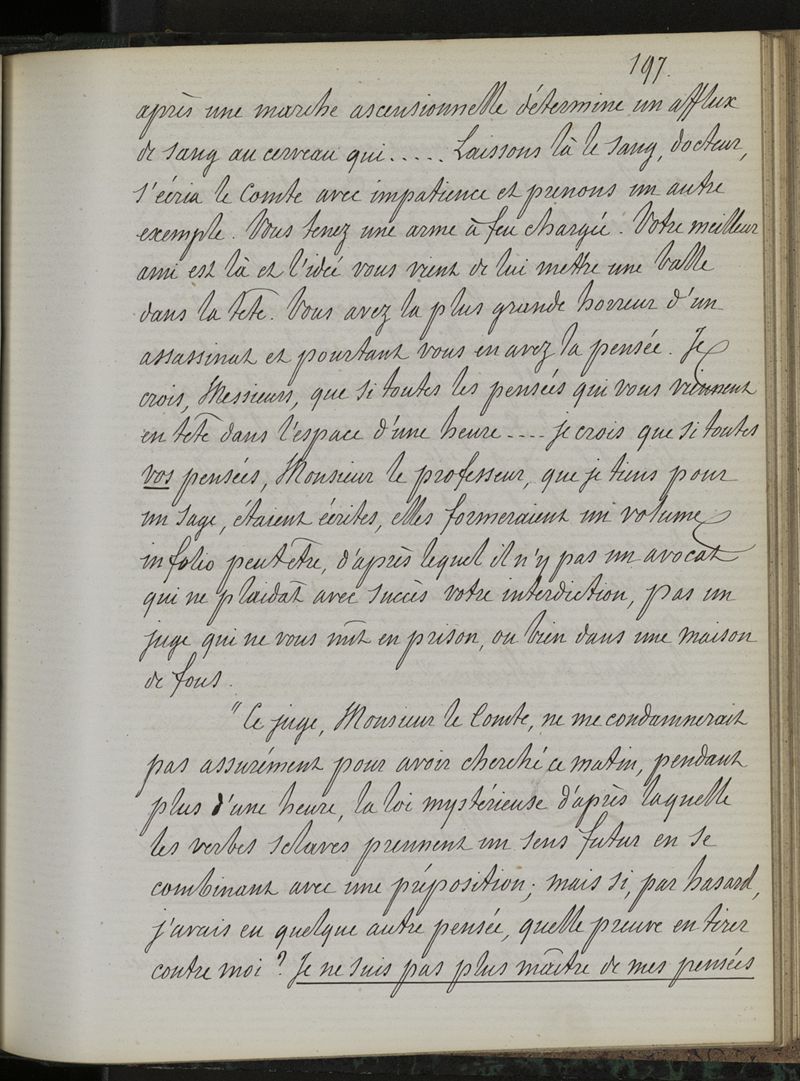 197.
après une marche ascensionnelle détermine un afflux
de sang au cerveau qui..... Laissons là le sang, docteur,
s'écria le Comte avec impatience et prenons un autre
exemple. Vous tenez une arme à feu chargée. Votre meilleur
ami est là et l'idée vous vient de lui mettre une balle
dans la tête. Vous avez la plus grande horreur d'un
assassinat et pourtant vous en avez la pensée. Je
crois, Messieurs, que si toutes les pensées qui vous viennent
en tête dans l'espace d'une heure.... je crois que si toutes
vos pensées, Monsieur le professeur, que je tiens pour
un sage, étaient écrites, elles formeraient un volume
in folio peut être, d'après lequel il n'y pas un avocat
qui ne plaidât avec succès votre interdiction, pas un
juge qui ne vous mît en prison, ou bien dans une maison
de fous.
"Ce juge, Monsieur le Comte, ne me condamnerait
pas assurément pour avoir cherché ce matin, pendant
plus d'une heure, la loi mystérieuse d'après laquelle
les verbes sclaves prennent un sens futur en se
combinant avec une préposition; mais si, par hasard,
j'avais eu quelque autre pensée, quelle preuve en tirer
contre moi? Je ne suis pas plus maître de mes pensées